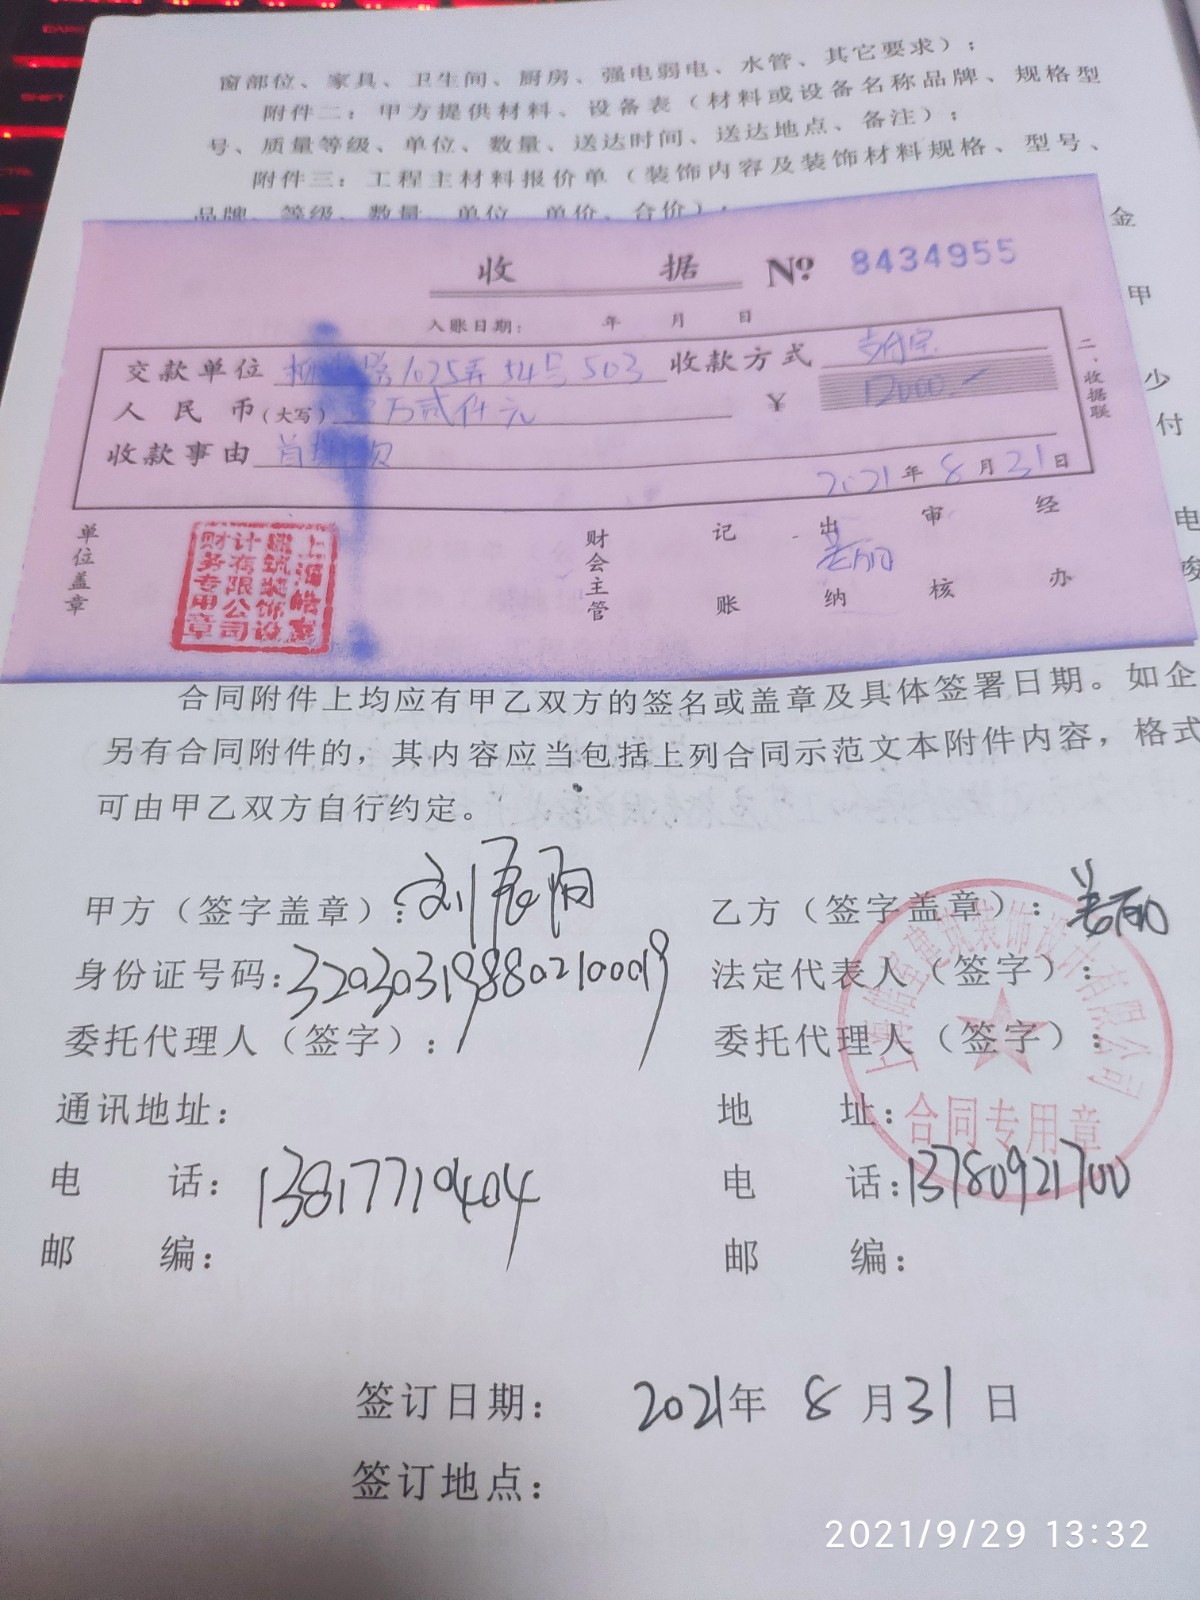 窗部位、家具、卫生间、厨房、强电弱电、水管、其它要求）；
附件二：甲方提供材料、设备表（材料或设备名称品牌、规格型
号、质量等级、单位、数量、送达时间、送达地点、备注）；
附件三：工程主材料报价单（装饰内容及装饰材料规格、型号、
品牌、等级、数量、单位、单价、合价）；
金
甲
少
付
电
收据 Nº 8434955
入账日期： 年 月 日
交款单位 1025弄54号503 收款方式 支付宝
人民币(大写) 万贰仟元 ¥ 12000
收款事由 首期款
2021年8月31日
二、收据联
单位盖章 财会主管 记账 出纳 审核 经办
上海皓寓建筑装饰设计有限公司财务专用章
合同附件上均应有甲乙双方的签名或盖章及具体签署日期。如企
另有合同附件的，其内容应当包括上列合同示范文本附件内容，格式
可由甲乙双方自行约定。
甲方（签字盖章）： 乙方（签字盖章）：
身份证号码：320303198802100019 法定代表人（签字）：
委托代理人（签字）： 委托代理人（签字）：
通讯地址： 地 址：
合同专用章
电 话：13817710404 电 话：13780921700
邮 编： 邮 编：
签订日期： 2021年 8 月31 日
签订地点：
2021/9/29 13:32